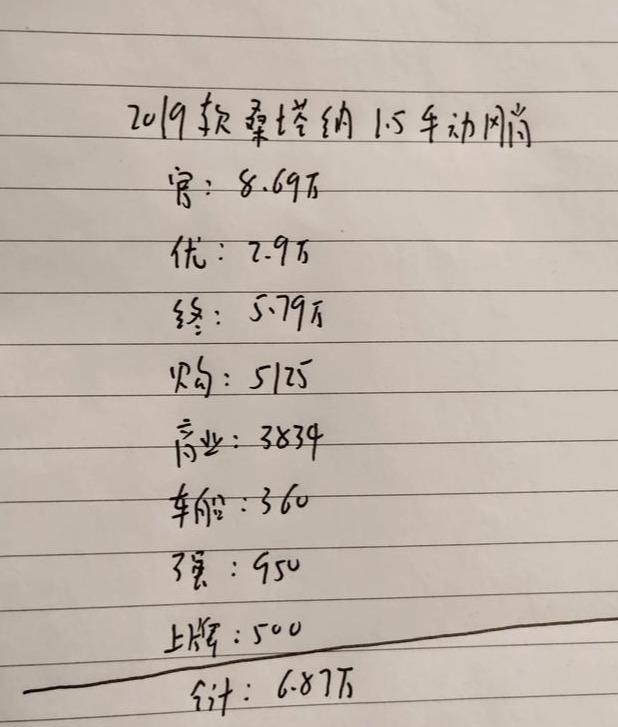 2019款桑塔纳 1.5手动风尚
官：8.69万
优：2.9万
终：5.79万
购：5125
商业：3834
车船：360
强：950
上牌：500
合计：6.87万